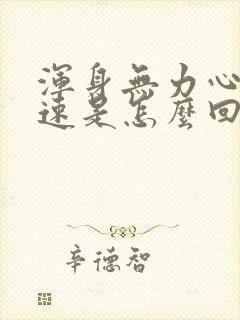 渾身無力心
速是怎麼回
辛德智